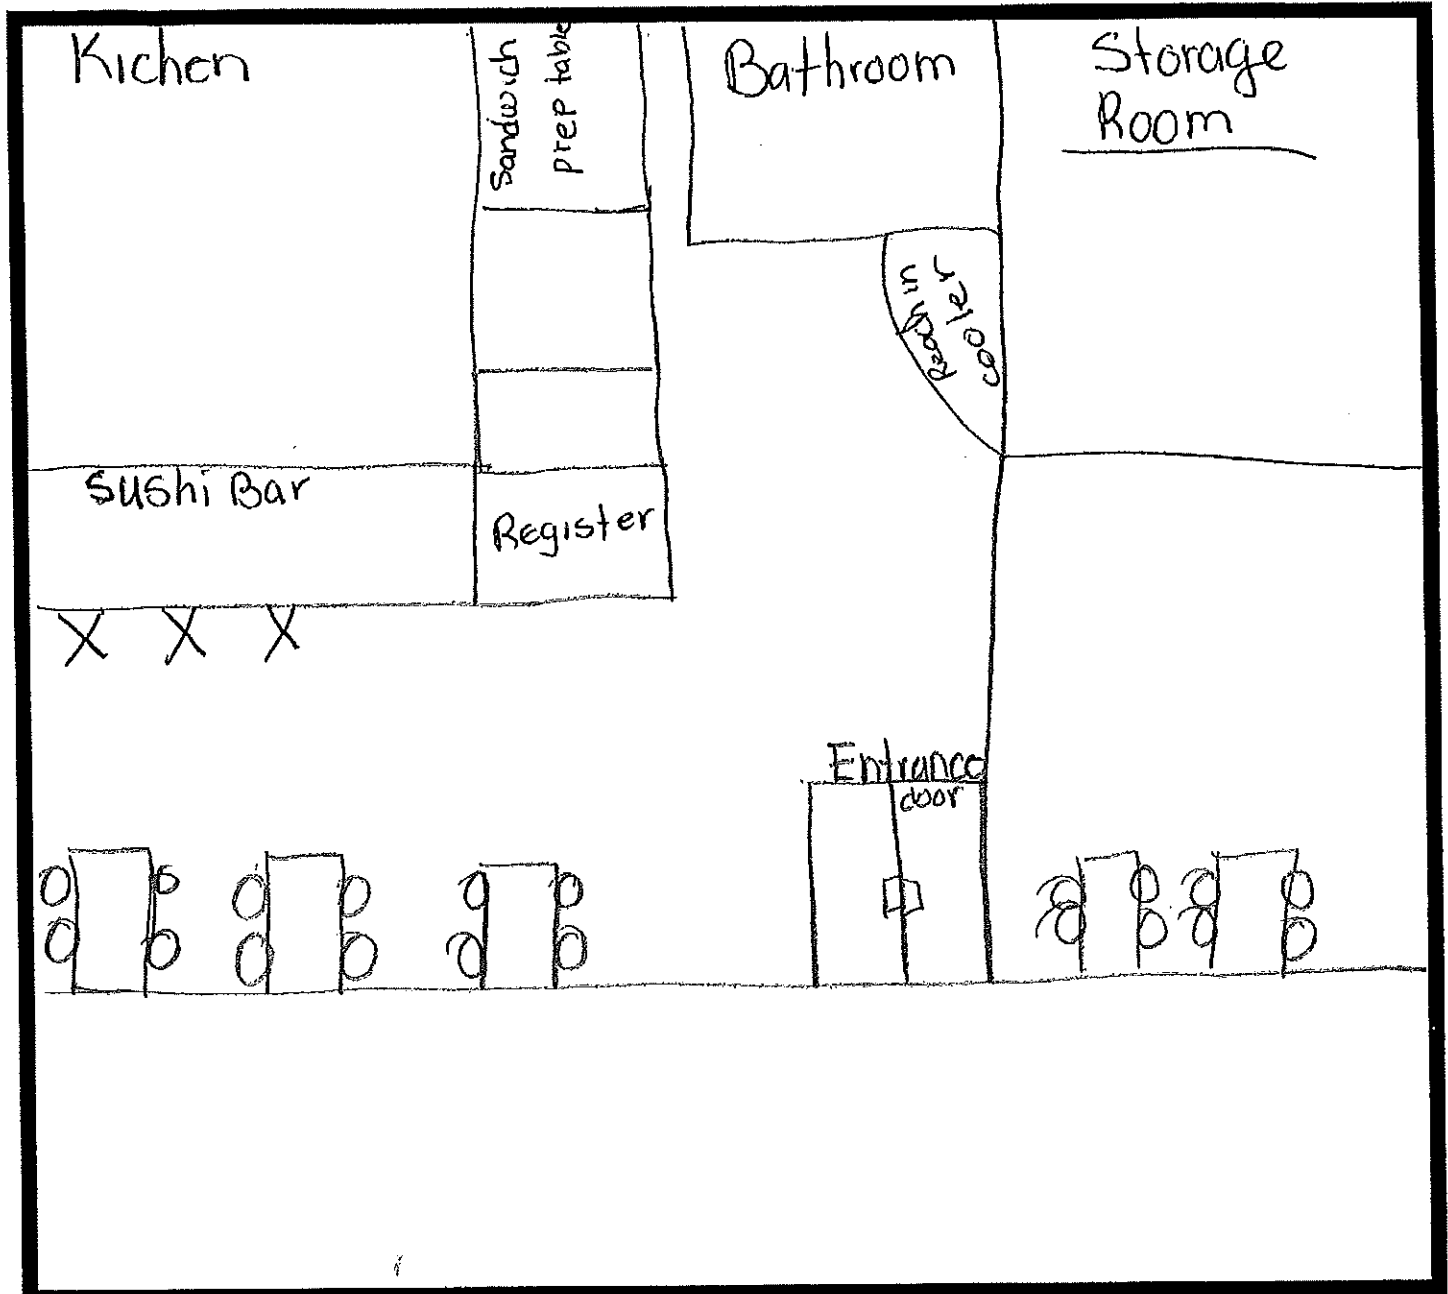 Kichen
Sandwich
prep table
Bathroom
Storage
Room
Reach in
cooler
Sushi Bar
Register
Entrance
door